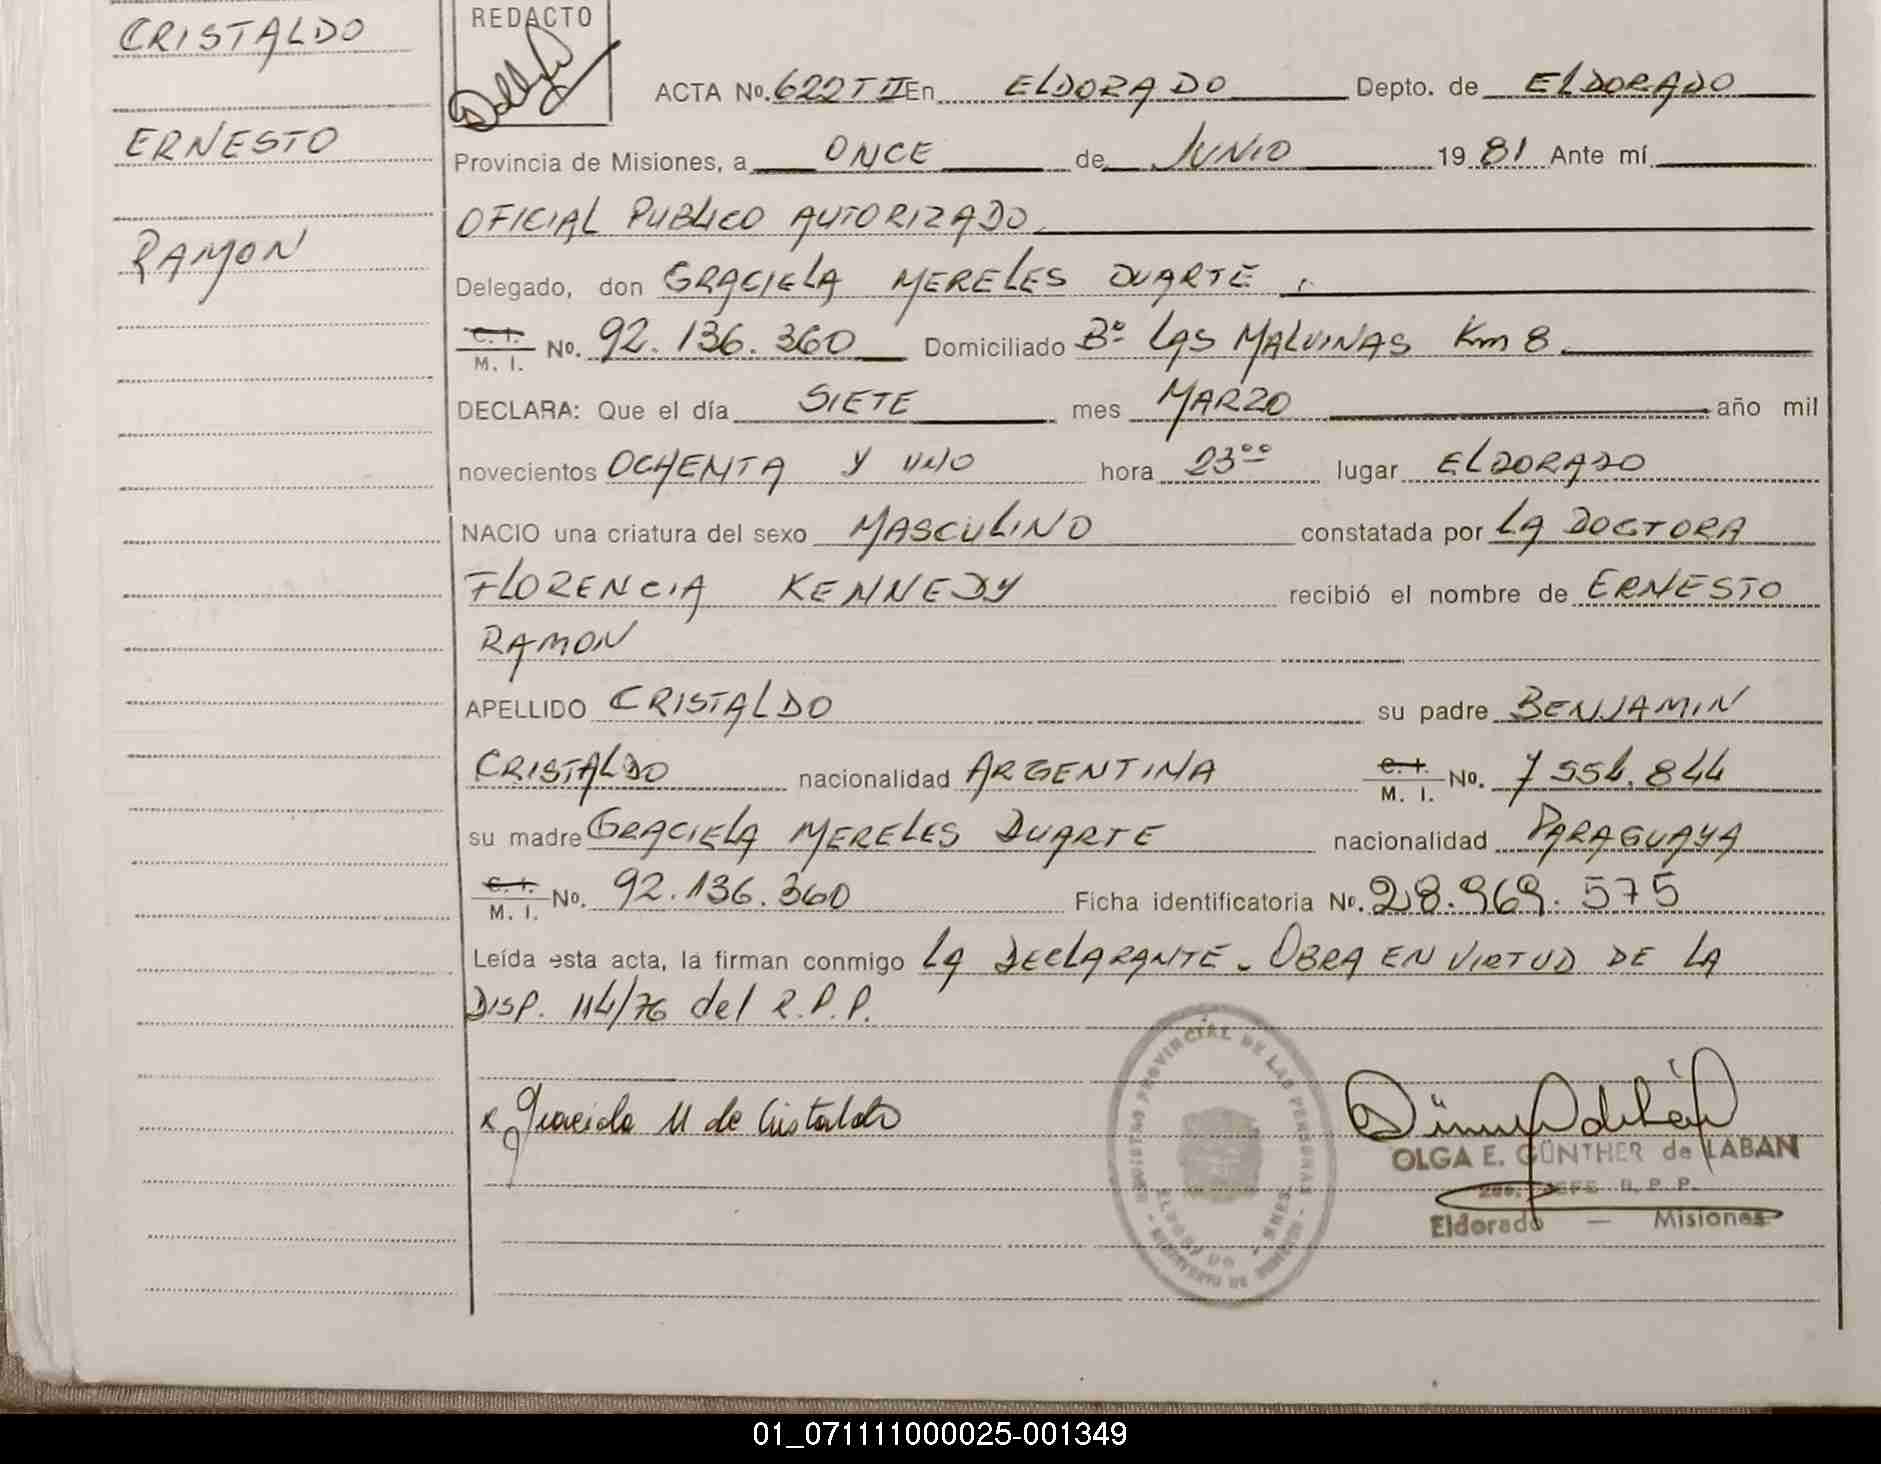 CRISTALDO
ERNESTO
RAMON
REDACTO
ACTA No. 622 T II En ELDORADO Depto. de ELDORADO
Provincia de Misiones, a ONCE de JUNIO 19 81 Ante mí
OFICIAL PUBLICO AUTORIZADO
Delegado, don GRACIELA MERELES DUARTE
C. I. M. I. No. 92.136.360 Domiciliado Bº LAS MALVINAS Km 8
DECLARA: Que el día SIETE mes MARZO año mil
novecientos OCHENTA Y UNO hora 23ºº lugar ELDORADO
NACIO una criatura del sexo MASCULINO constatada por LA DOCTORA
FLORENCIA KENNEDY recibió el nombre de ERNESTO
RAMON
APELLIDO CRISTALDO su padre BENJAMIN
CRISTALDO nacionalidad ARGENTINA C. I. M. I. No. 7554.844
su madre GRACIELA MERELES DUARTE nacionalidad PARAGUAYA
C. I. M. I. No. 92.136.360 Ficha identificatoria No. 28.969.575
Leída esta acta, la firman conmigo LA DECLARANTE. OBRA EN VIRTUD DE LA
DISP. 114/76 del R.P.P.
x Graciela M de Cristaldo
REGISTRO PROVINCIAL DE LAS PERSONAS
OLGA E. GÜNTHER de LABAN
JEFE R. P. P.
Eldorado — Misiones
01_071111000025-001349